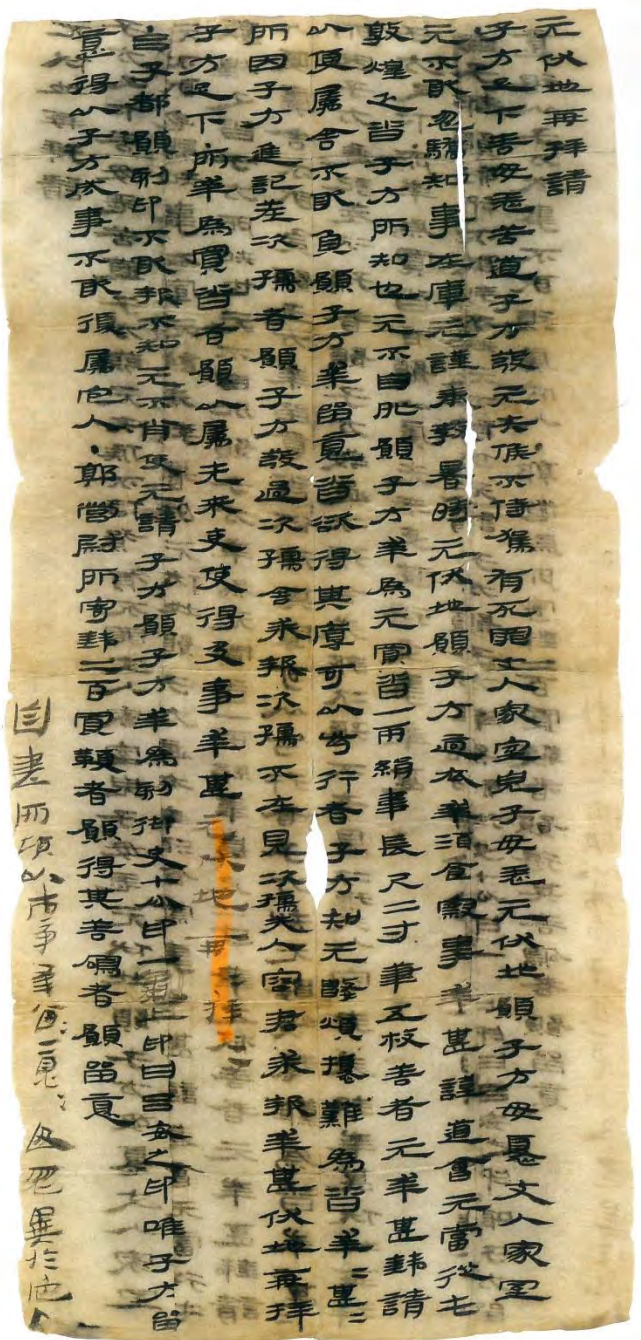 元伏地再拜請
子方足下善毋恙苦道子方發元失候不侍駕有死罪丈人家室兒子毋恙元伏地願子方毋憂丈人家室
元不敢忽驕知事在庫元謹奉教暑時元伏地願子方適衣幸酒食察事幸甚謹道會元當從屯
敦煌乏沓子方所知也元不自外願子方幸為元買沓一兩絹韋長尺二寸筆五枚善者元幸甚錢請
以便屬舍不敢負願子方幸留意沓欲得其厚可以步行者子方知元數煩擾難為沓幸=甚=
所因子方進記差次孺者願子方發過次孺舍求報次孺不在見次孺夫人容君求報幸甚伏地再拜
子方足下所幸為買沓者願以屬先來吏使得及事幸甚元伏地再拜=
呂子都願刻印不敢報不知元不肖使元請子方願子方幸為刻御史七分印一龜上印曰呂安之印唯子方留
意得以子方成事不敢復屬它人·郭營尉所寄錢二百買鞭者願得其善鳴者願留意
自書所願以市事幸留=意=毋忽異於它人